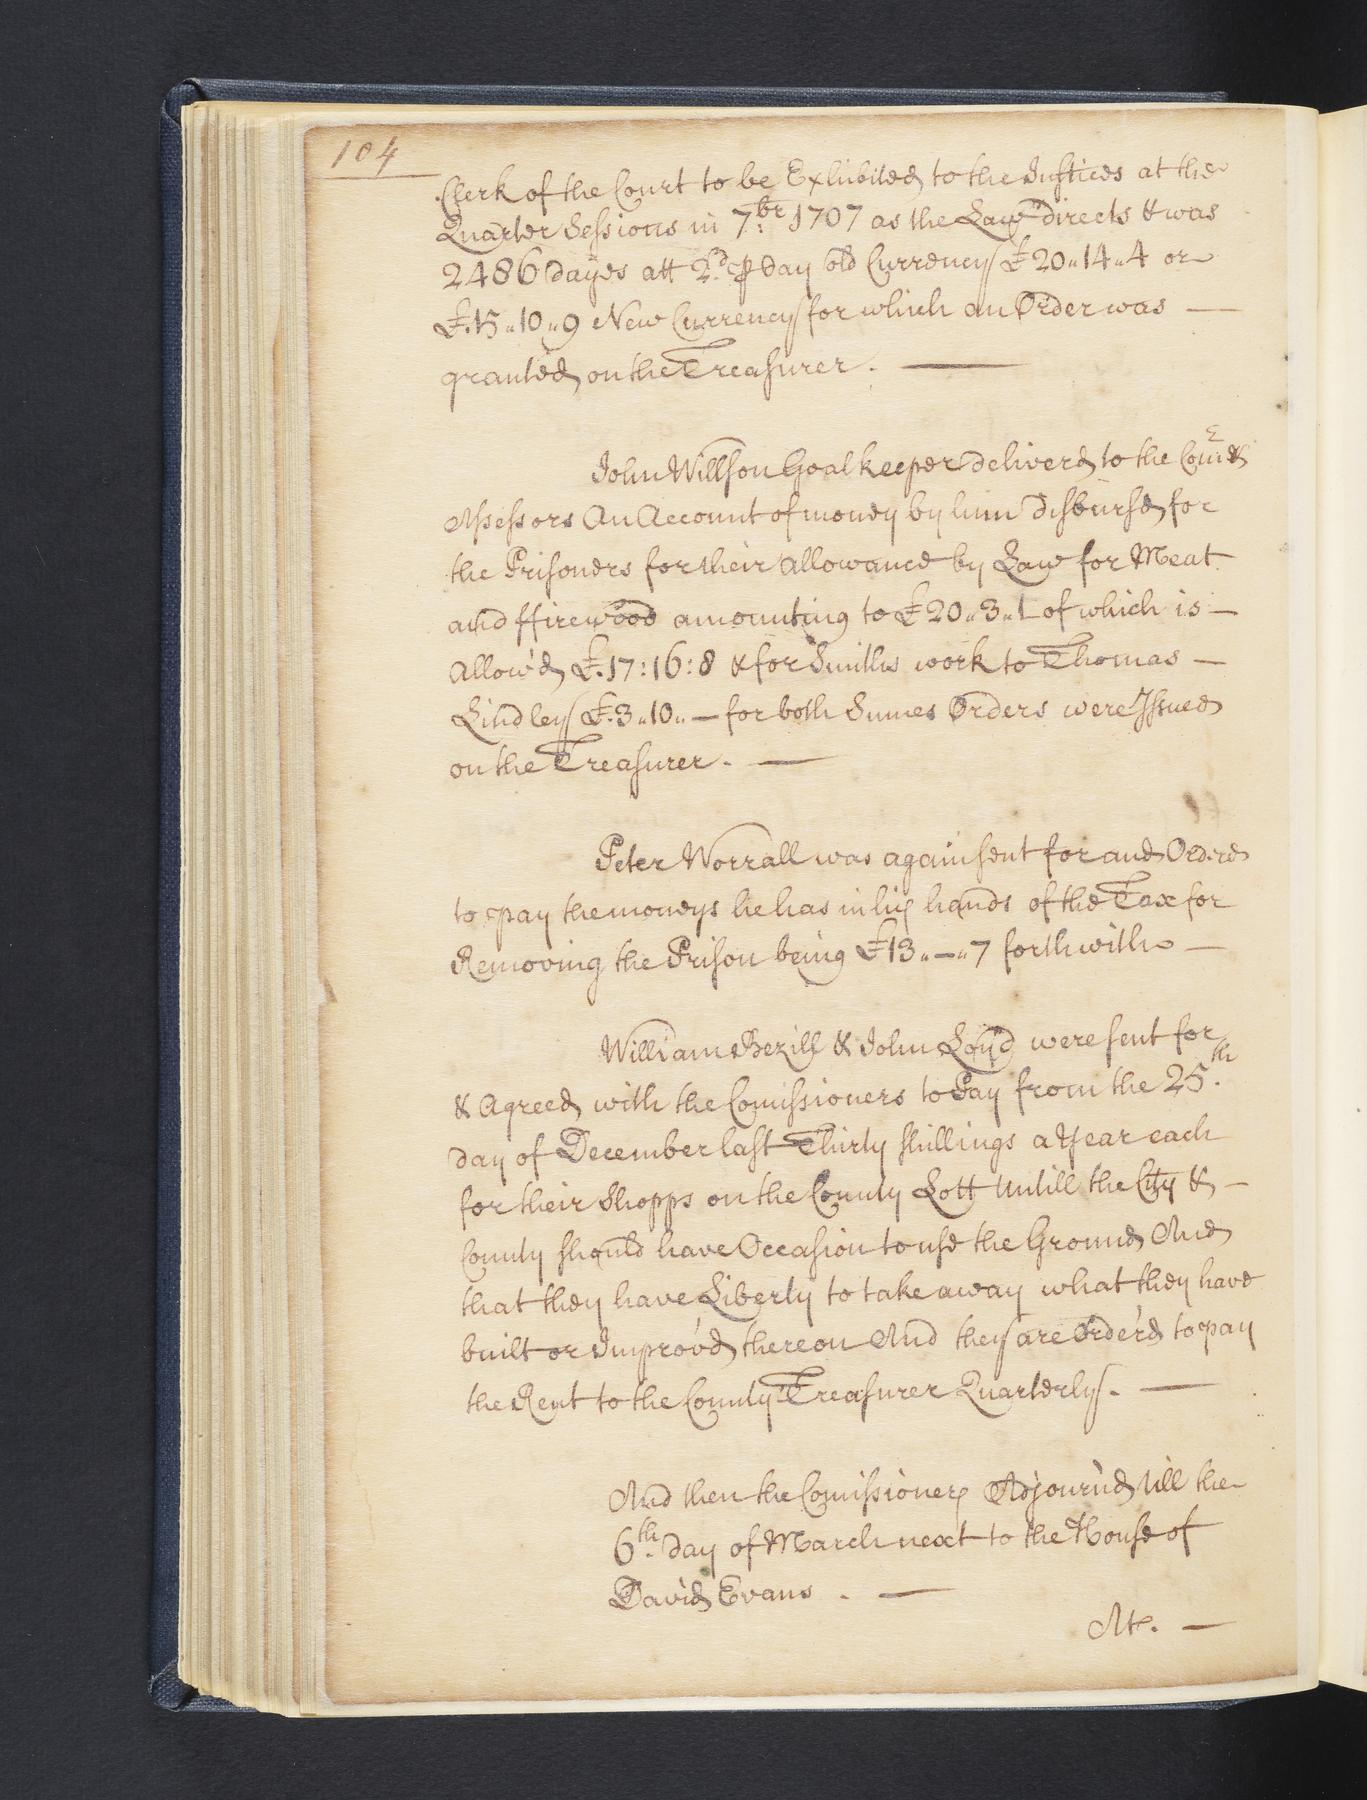 104
Clerk of the Court to be Exhibited to the Justices at the
Quarter Sessions in 7:br 1707 as the Law directs & was
2486 dayes att 2d. ⅌ day old Currency £20„14„4 or
£.15„10„9 New Currency for which an Order was —
granted on the Treasurer. —
John Willson Goal keeper deliverd to the Com:rs &
Assessors An Account of money by him disbursd for
the Prisoners for their allowance by Law for Meat
and ffirewood amounting to £20„3„1 of which is —
Allow'd £.17:16:8 & for Smiths work to Thomas —
Lindley £.3„10„— for both Sumes Orders were Issued
on the Treasurer. —
Peter Worrall was again sent for and Orderd
to pay the moneys he has in his hands of the Tax for
Removing the Prison being £13„—„7 forthwith —
William Bezill & John Loyd were sent for
& Agreed with the Comissioners to Pay from the 25.th
day of December last Thirty shillings a Year each
for their Shopps on the County Lott Untill the City & —
County should have Occasion to use the Ground And
that they have Liberty to take away what they have
built or Improv'd thereon And they are Order'd to pay
the Rent to the County Treasurer Quarterly. —
And then the Comissioners Adjourn'd till the
6th. day of March next to the House of
David Evans. —
At. —